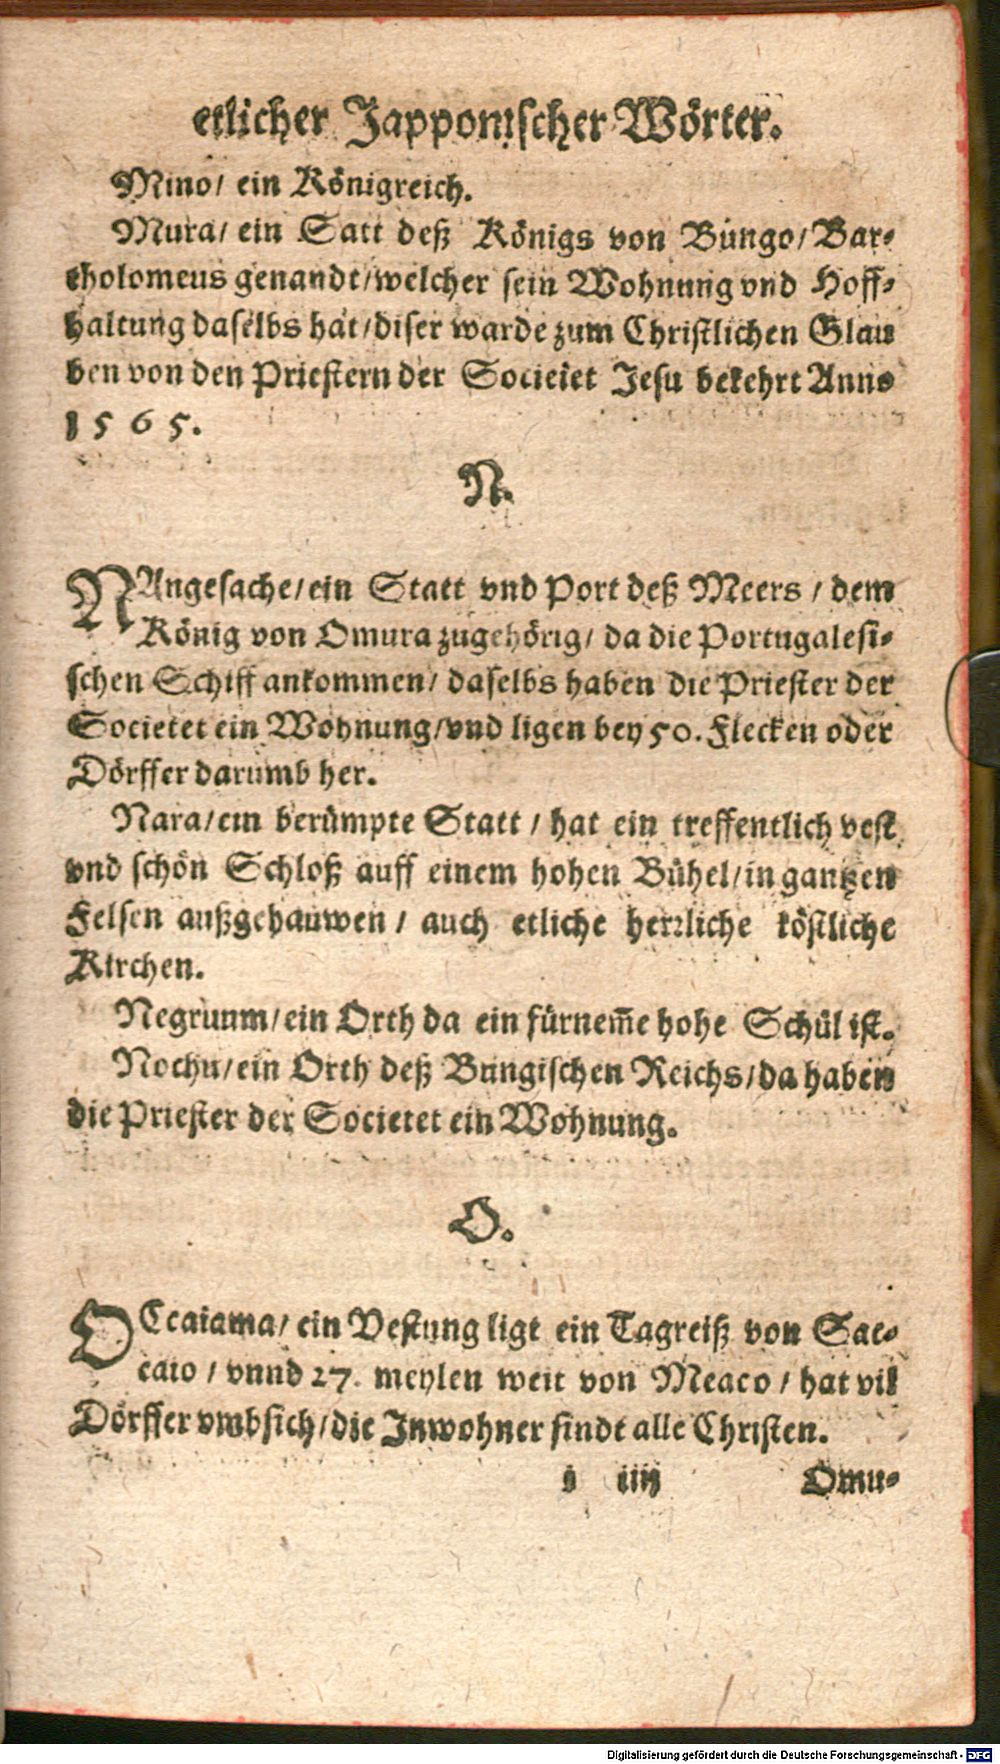 etlicher Japponischer Wörter.
Mino/ ein Königreich.
Mura/ ein Satt deß Königs von Bungo/ Bar-
tholomeus genandt/welcher sein Wohnung vnd Hoff-
haltung daselbs hat/diser warde zum Christlichen Glau
ben von den Priestern der Societet Jesu bekehrt Anno
1565.
N.
NAngesache/ein Statt vnd Port deß Meers / dem
König von Omura zugehörig/ da die Portugalesi-
schen Schiff ankommen/ daselbs haben die Priester der
Societet ein Wohnung/vnd ligen bey 50. Flecken oder
Dörffer darumb her.
Nara/ein berümpte Statt / hat ein treffentlich vest
vnd schön Schloß auff einem hohen Bühel/in gantzen
Felsen außgehauwen / auch etliche herzliche köstliche
Kirchen.
Negruum/ein Orth da ein fürnem̃e hohe Schül ist.
Nochu/ein Orth deß Bungischen Reichs/da haben
die Priester der Societet ein Wohnung.
O.
OCcaiama/ ein Vestung ligt ein Tagreiß von Sac-
caio / vnnd 27. meylen weit von Meaco / hat vil
Dörffer vmbsich/die Inwohner sindt alle Christen.
i iiij Omu-
Digitalisierung gefördert durch die Deutsche Forschungsgemeinschaft - DFG